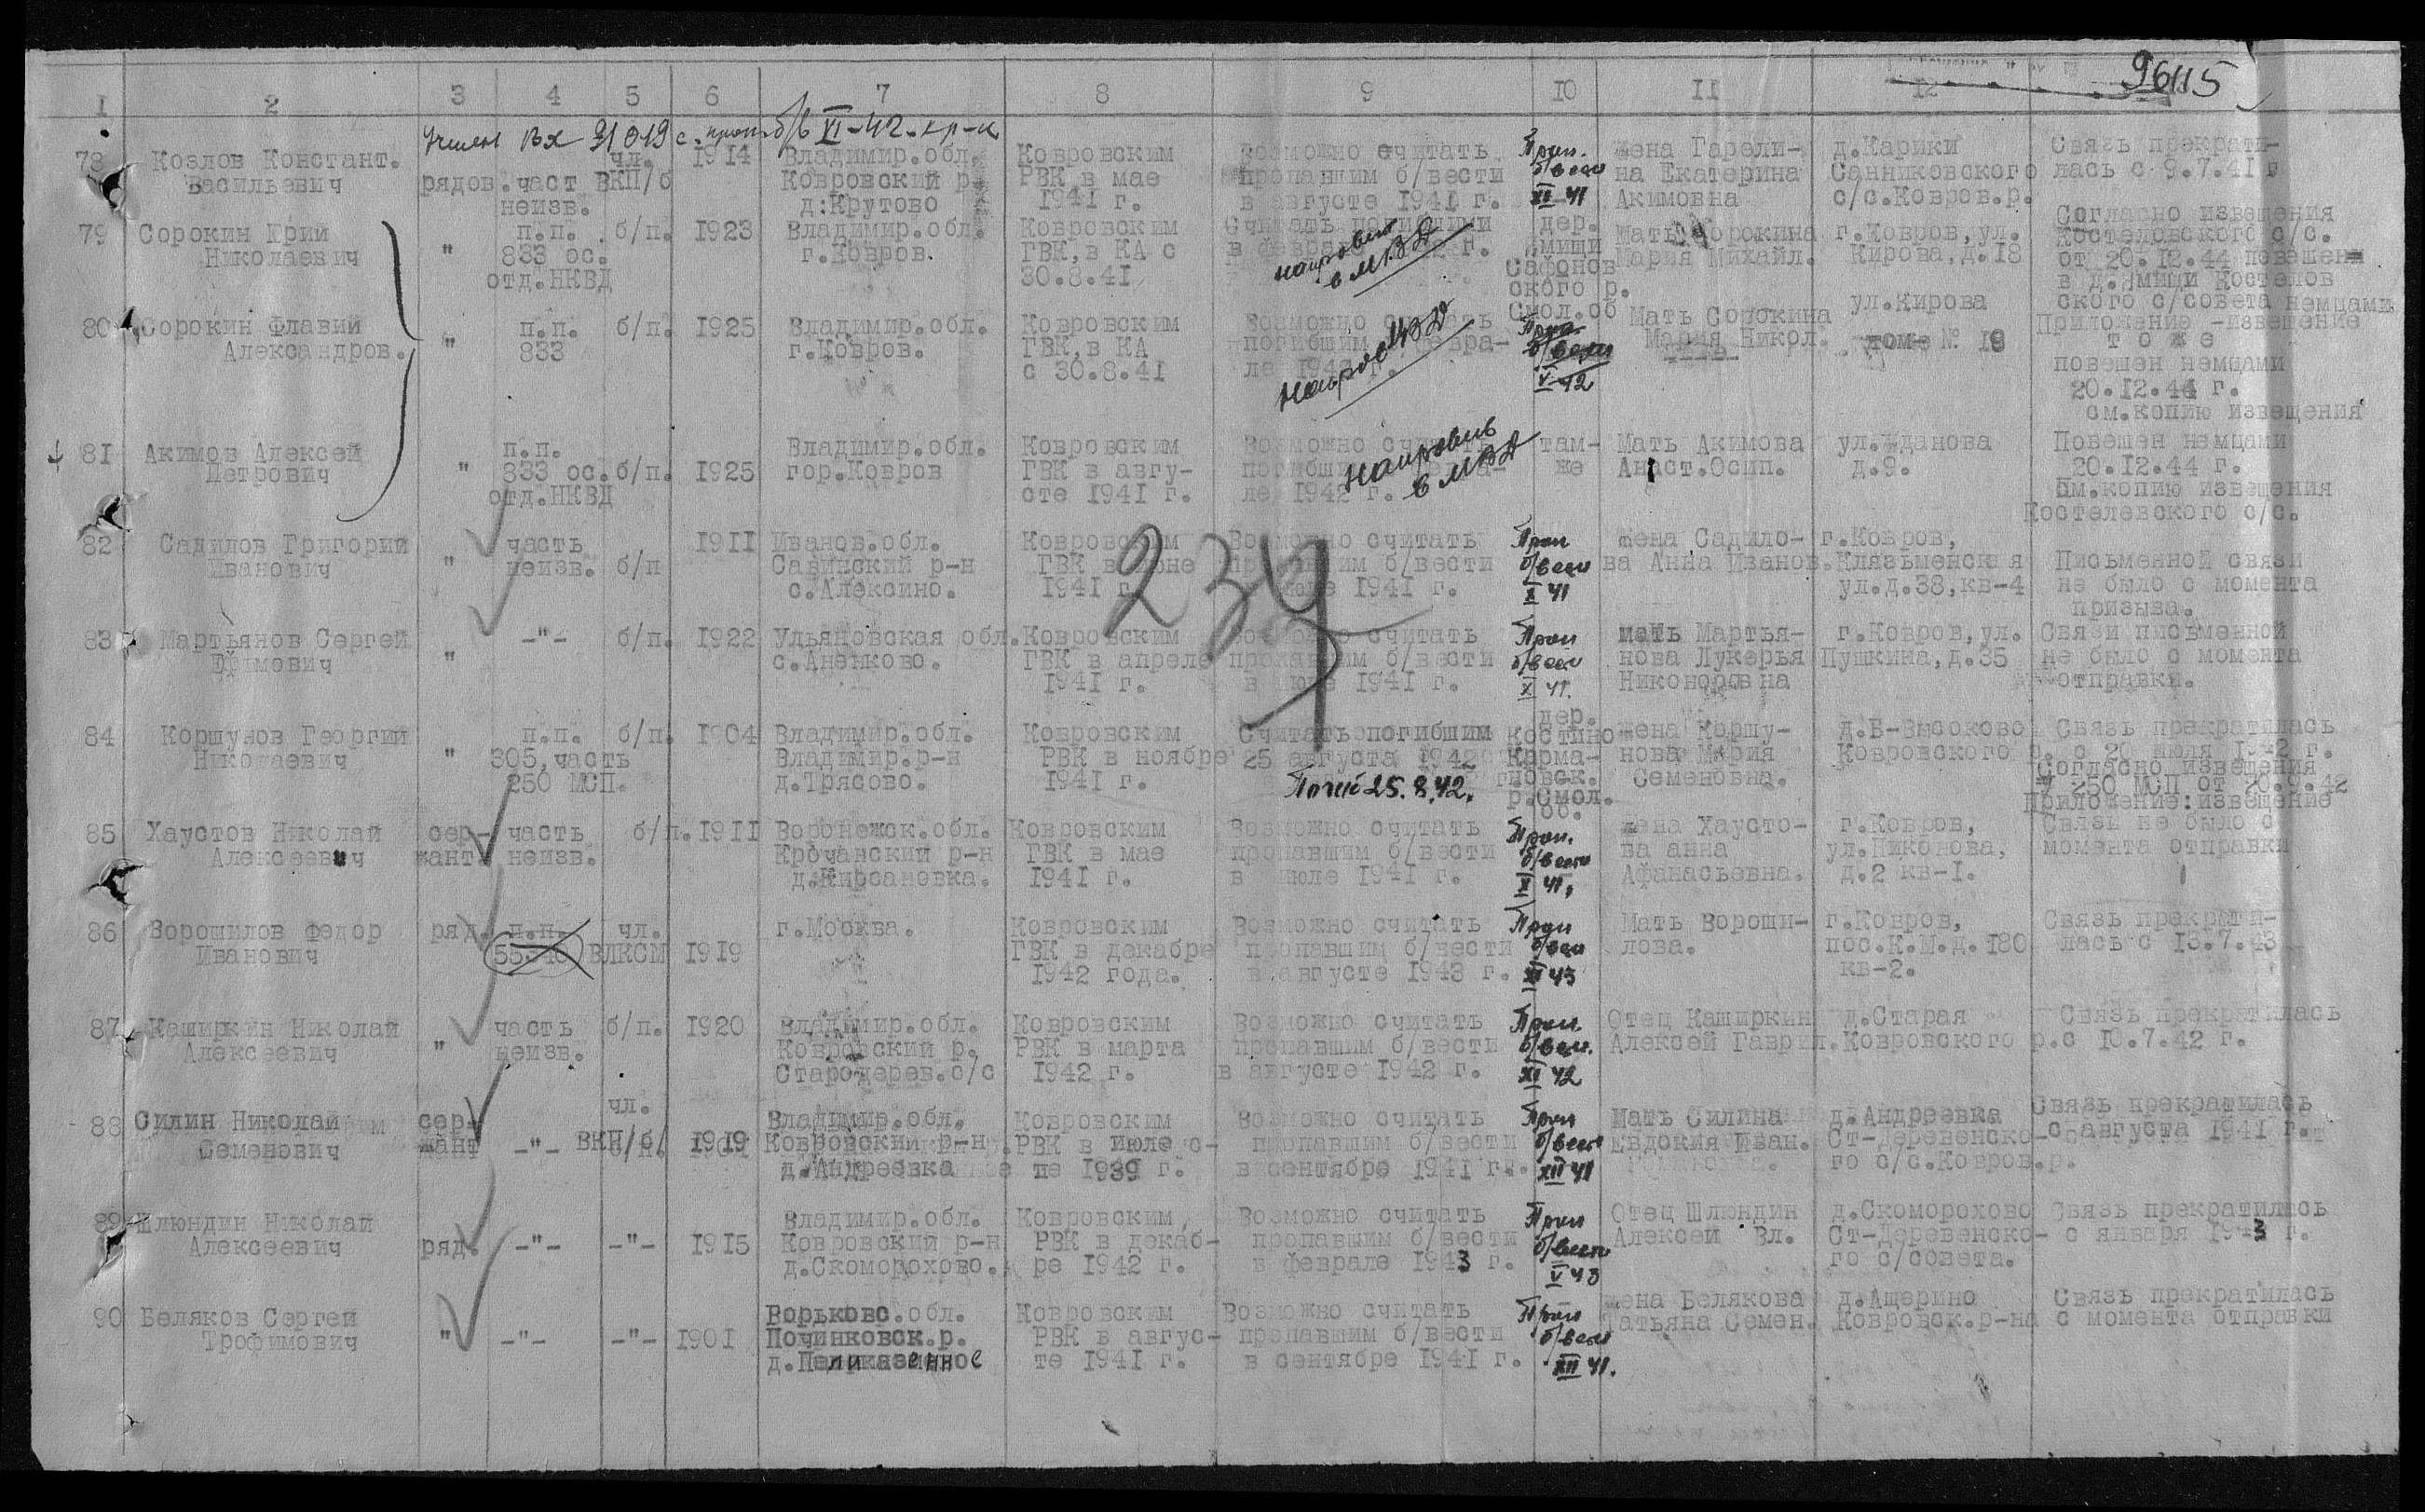 96115
1 2 3 4 5 6 7 8 9 10 11 12
Учтен вх 91019 с. проп б/в XI-42
78 Козлов Констант. чл. 1914 Владимир.обл. Ковровским Возможно считать Проп. жена Гарели- д.Карики Связь прекрати-
Васильевич рядов.част ВКП/б Ковровский р. РВК в мае пропавшим б/вести б/вести на Екатерина Санниковского лась с 9.7.41 г
неизв. д.Крутово 1941 г. в августе 1941 г. XI 41 Акимовна с/с.Ковров.р.
79 Сорокин Юрий п.п. б/п. 1923 Владимир.обл. Ковровским Считать погибшими дер. Мать Сорокина г.Ковров,ул. Согласно извещения
Николаевич " 833 ос. г.Ковров. ГВК,в КА с Мария Михайл. Кирова,д.18 Костеловского с/с.
отд.НКВД 30.8.41 Сафонов ского р. Смол.об от 20.12.44 повешен
направлен в МВД
в д. Костелов
ского с/совета немцами
80 Сорокин Флавий п.п. б/п. 1925 Владимир.обл. Ковровским Возможно считать Проп Мать Сорокина ул.Кирова Приложение -извещение
Александров. " 833 г.Ковров. ГВК,в КА погибшим б/вести Мария Никол. дом- № 19 т о ж е
с 30.8.41 V-42 повешен немцами
20.12.44 г.
см.копию извещения
81 Акимов Алексей п.п. Владимир.обл. Ковровским Возможно там- Мать Акимова ул.Жданова Повешен немцами
Петрович " 833 ос. б/п. 1925 гор.Ковров ГВК в авгу- же Анаст.Осип. д.9. 20.12.44 г.
отд.НКВД сте 1941 г. ле 1942 г. См.копию извещения
в МВД
Костелевского с/с.
237
82 Садилов Григорий часть 1911 Иванов.обл. Ковровским Возможно считать Проп жена Садило- г.Ковров,
Иванович " неизв. б/п Савинский р-н ГВК в июне пропавшим б/вести б/вести ва Анна Иванов. Клязьменская Письменной связи
с.Алексино. 1941 г. 1941 г. X 41 ул.д.38,кв-4 не было с момента
призыва.
83 Мартьянов Сергей -"- б/п. 1922 Ульяновская обл. Ковровским Возможно считать Проп мать Мартья- г.Ковров,ул. Связи письменной
Ефимович " с.Аненково. ГВК в апреле пропавшим б/вести б/вести нова Лукерья Пушкина,д.35 не было с момента
1941 г. в июле 1941 г. X 41. Никоноровна отправки.
84 Коршунов Георгий п.п. б/п. 1904 Владимир.обл. Ковровским Считать погибшим дер. Костино жена Коршу- д.Б-Высоково Связь прекратилась
Николаевич " 305,часть Владимир.р-н РВК в ноябре 25 августа 1942 Карма- нова Мария Ковровского р. с 20 июля 1942 г.
250 МСП. д.Трясово. 1941 г. Погиб 25.8.42. новск. Семеновна. Согласно извещения
р.Смол. об. 250 МСП от 20.9.42
Приложение:извещение
85 Хаустов Николай сер- часть б/п. 1911 Воронежск.обл. Ковровским Возможно считать Проп. жена Хаусто- г.Ковров, Связи не было с
Алексеевич жант. неизв. Крочанский р-н ГВК в мае пропавшим б/вести б/вести ва анна ул.Никонова, момента отправки
д.Кирсановка. 1941 г. в июле 1941 г. X 41. Афанасьевна. д.2 кв-1.
86 Ворошилов Федор ряд. п.п. чл. г.Москва. Ковровским Возможно считать Проп Мать Вороши- г.Ковров, Связь прекрати-
Иванович ВЛКСМ 1919 ГВК в декабре пропавшим б/вести б/вести лова. пос.К.М.д.180 лась с 13.7.43
1942 года. в августе 1943 г. XI 43 кв-2.
87 Каширкин Николай часть б/п. 1920 Владимир.обл. Ковровским Возможно считать Проп. Отец Каширкин д.Старая Связь прекратилась
Алексеевич " неизв. Ковровский р. РВК в марта пропавшим б/вести б/вести. Алексей Гаврил. Ковровского р. с 10.7.42 г.
Стародерев.с/с 1942 г. в августе 1942 г. XI 42
88 Силин Николай сер- чл. Владимир.обл. Ковровским Возможно считать Проп Мать Силина д.Андреевка Связь прекратилась
Семенович жант -"- ВКП/б/ 1919 Ковровский р-н. РВК в июле пропавшим б/вести б/вести Евдокия Иван. Ст-Деревенско- с августа 1941 г.
д.Андреевка 1939 г. в сентябре 1941 г. XII 41 го с/с.Ковров.р.
89 Шлюндин Николай Владимир.обл. Ковровским Возможно считать Проп Отец Шлюндин д.Скоморохово Связь прекратилась
Алексеевич ряд. -"- -"- 1915 Ковровский р-н РВК в декаб- пропавшим б/вести б/вести Алексей Вл. Ст-Деревенско- с января 1943 г.
д.Скоморохово. ре 1942 г. в феврале 1943 г. V 43 го с/совета.
90 Беляков Сергей Горьковс.обл. Ковровским Возможно считать Проп жена Белякова д.Ащерино Связь прекратилась
Трофимович " -"- -"- 1901 Починковск.р. РВК в авгус- пропавшим б/вести б/вести Татьяна Семен. Ковровск.р-на с момента отправки
те 1941 г. в сентябре 1941 г. XII 41.